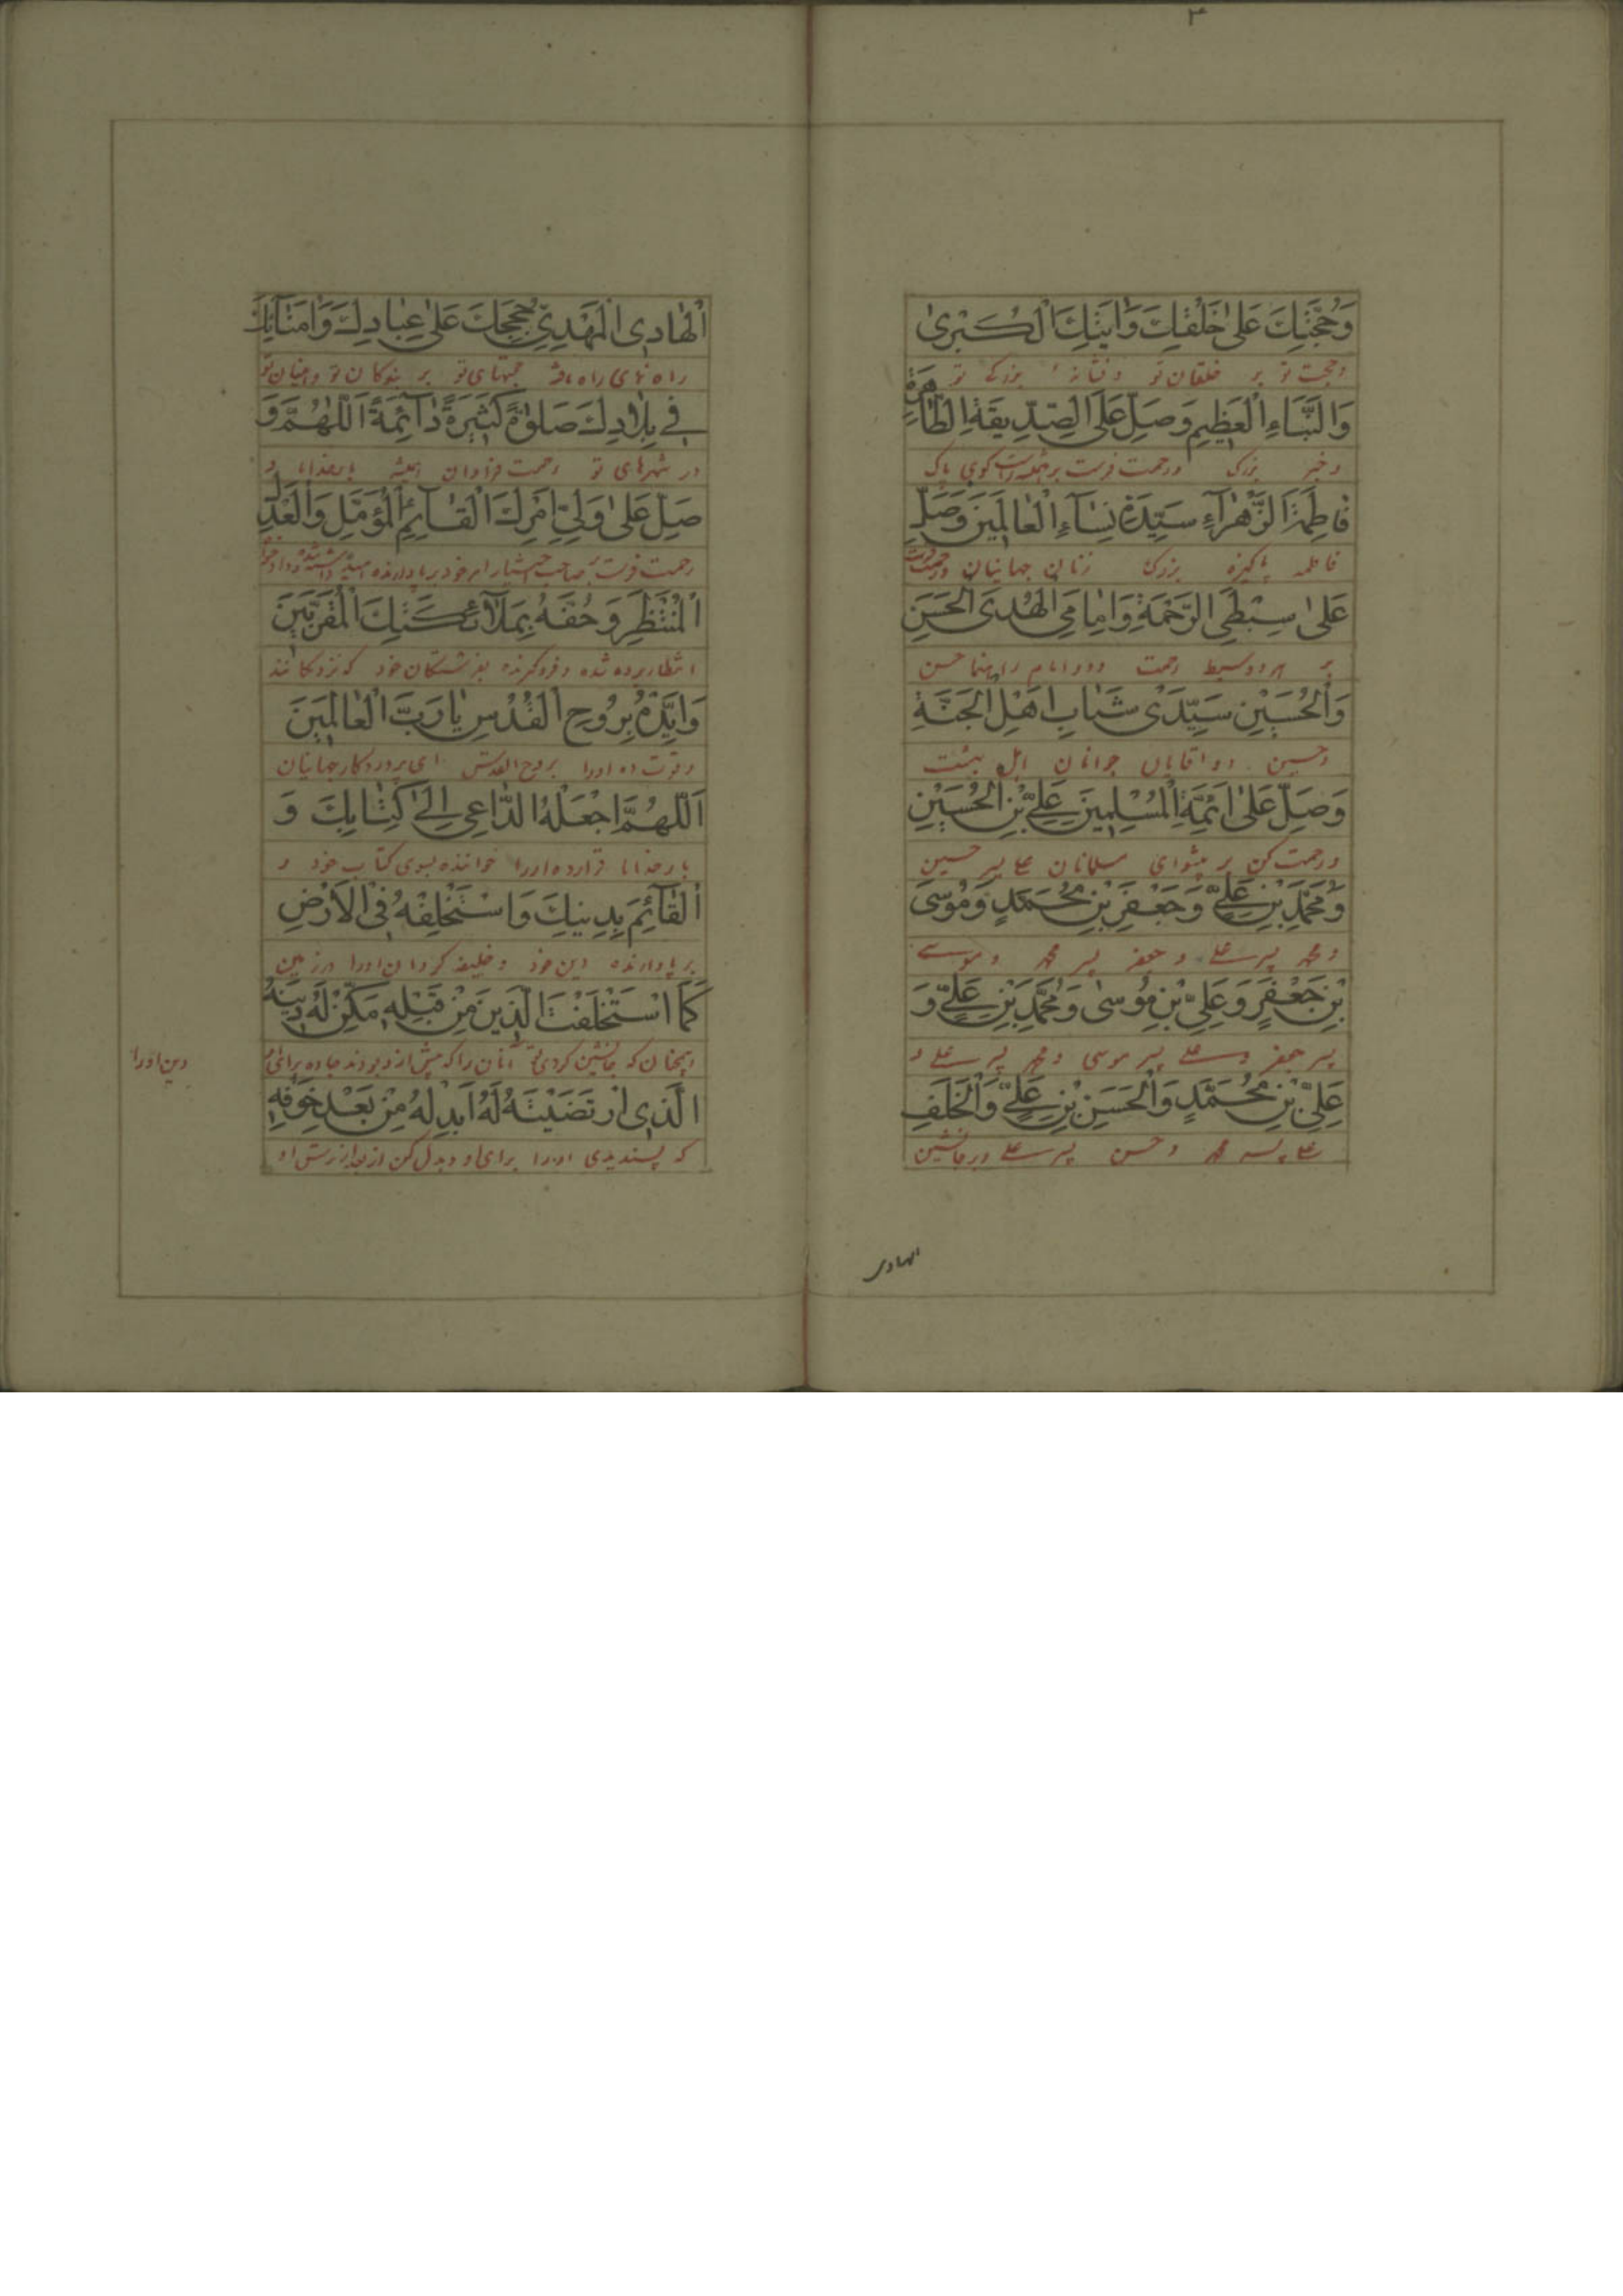 ۳
وَحُجَّتِكَ عَلىٰ خَلْقِكَ وَاٰيَتِكَ الْكُبْرىٰ
وحجت تو بر خلقان تو ونشانهٔ بزرک تو
وَالنَّبَاءِ الْعَظيمِ وَصَلِّ عَلَى الصِّدّيقَةِ الطّاهِرَةِ
وخبر بزرک ورحمت فرست بر کوی پاک
فاطِمَةَ الزَّهْرآءِ سَيِّدَةِ نِسآءِ الْعالَمينَ وَصَلِّ
فاطمه پاکیزه بزرک زنان جهانیان
عَلىٰ سِبْطَىِ الرَّحْمَةِ وَاِمامَىِ الْهُدَى الْحَسَنِ
بر هر دو سبط رحمت ودو امام راهنما حسن
وَالْحُسَيْنِ سَيِّدَىْ شَبابِ اَهْلِ الْجَنَّةِ
وحسین دو اقایان جوانان اهل بهشت
وَصَلِّ عَلىٰ اَئِمَّةِ الْمُسْلِمينَ عَلِىِّ بْنِ الْحُسَيْنِ
ورحمت کن بر پیشوای مسلمانان علی پسر حسین
وَمُحَمَّدِ بْنِ عَلِىٍّ وَجَعْفَرِ بْنِ مُحَمَّدٍ وَمُوسَى
ومحمد پسر علی وجعفر پسر محمد وموسی
بْنِ جَعْفَرٍ وَعَلِىِّ بْنِ مُوسىٰ وَمُحَمَّدِ بْنِ عَلِىٍّ وَ
پسر جعفر وعلی پسر موسی ومحمد پسر علی و
عَلِىِّ بْنِ مُحَمَّدٍ وَالْحَسَنِ بْنِ عَلِىٍّ وَالْخَلَفِ
علی پسر محمد وحسن پسر علی وبر جانشین
الهادی
الْهادِى الْمَهْدِىِّ حُجَجِكَ عَلىٰ عِبادِكَ وَاُمَنآئِكَ
راه نمای راه یافته حجتهای تو بر بندکان تو وامینان تو
فى بِلادِكَ صَلوٰةً كَثيرَةً دآئِمَةً اَللّٰهُمَّ وَ
در شهرهای تو رحمت فراوان همیشه بارخدایا و
صَلِّ عَلىٰ وَلِىِّ اَمْرِكَ الْقآئِمِ الْمُؤَمَّلِ وَالْعَدْلِ
رحمت فرست صاحب اختیار امر خود برپادارنده امید داشته شده
الْمُنْتَظَرِ وَحُفَّهُ بِمَلآئِكَتِكَ الْمُقَرَّبينَ
انتظار برده شده وفروکیرنده بفرشتکان خود که نزدیکانند
وَاَيِّدْهُ بِرُوحِ الْقُدُسِ يا رَبَّ الْعالَمينَ
وقوت ده اورا بروح القدس ای پروردکار جهانیان
اَللّٰهُمَّ اجْعَلْهُ الدّاعِىَ اِلىٰ كِتابِكَ وَ
بارخدایا قرار ده اورا خواننده بسوی کتاب خود و
الْقآئِمَ بِدينِكَ وَاسْتَخْلِفْهُ فِى الْاَرْضِ
برپادارنده دین خود وخلیفه کردان اورا در زمین
كَمَا اسْتَخْلَفْتَ الَّذينَ مِنْ قَبْلِهِ مَكِّنْ لَهُ دينَهُ
همچنان که جانشین کردی تو آنان را که پیش از او بودند جا ده برای او
دین اورا
الَّذِى ارْتَضَيْتَهُ لَهُ اَبْدِلْهُ مِنْ بَعْدِ خَوْفِهِ
که پسندیدی اورا برای او وبدل کن از بعد از ترس او